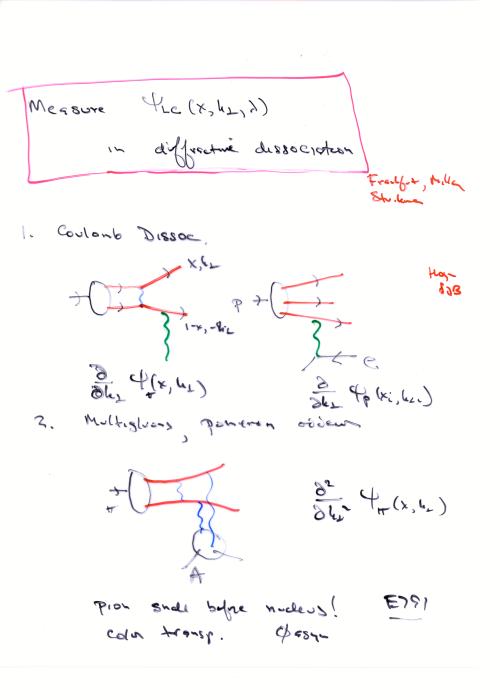 Measure Ψ_LC (x, k⊥, λ)
in diffractive dissociation
Frankfurt, Miller
Strikman
1. Coulomb Dissoc.
x, k⊥
1-x, -k⊥
p
e
∂/∂k⊥ Ψ_π(x, k⊥)
∂/∂k⊥ Ψ_p(x_i, k⊥i)
2. Multigluons, pomeron
π
A
∂²/∂k⊥² Ψ_π(x, k⊥)
pion small before nucleus! E791
color transp. ϕasym